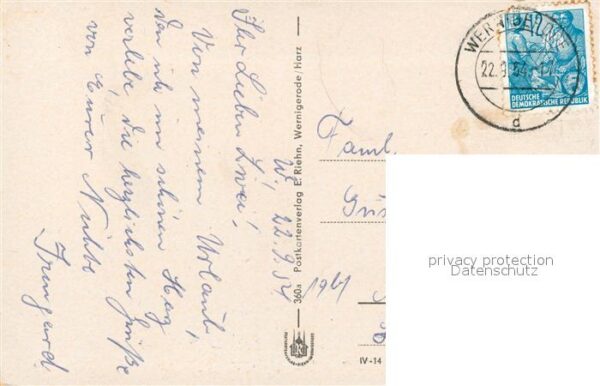 W, 22.9.54
Ihr Lieben Zwei!
Von meinem Urlaub,
den ich im schönen Harz
verlebe, die herzlichsten Grüße
von Eurer Nichte
Irmgard
360a Postkartenverlag E. Riehn, Wernigerode/Harz
IV-14
Faml.
WERNIGERODE
22.9.54
d
DEUTSCHE
DEMOKRATISCHE REPUBLIK
privacy protection
Datenschutz